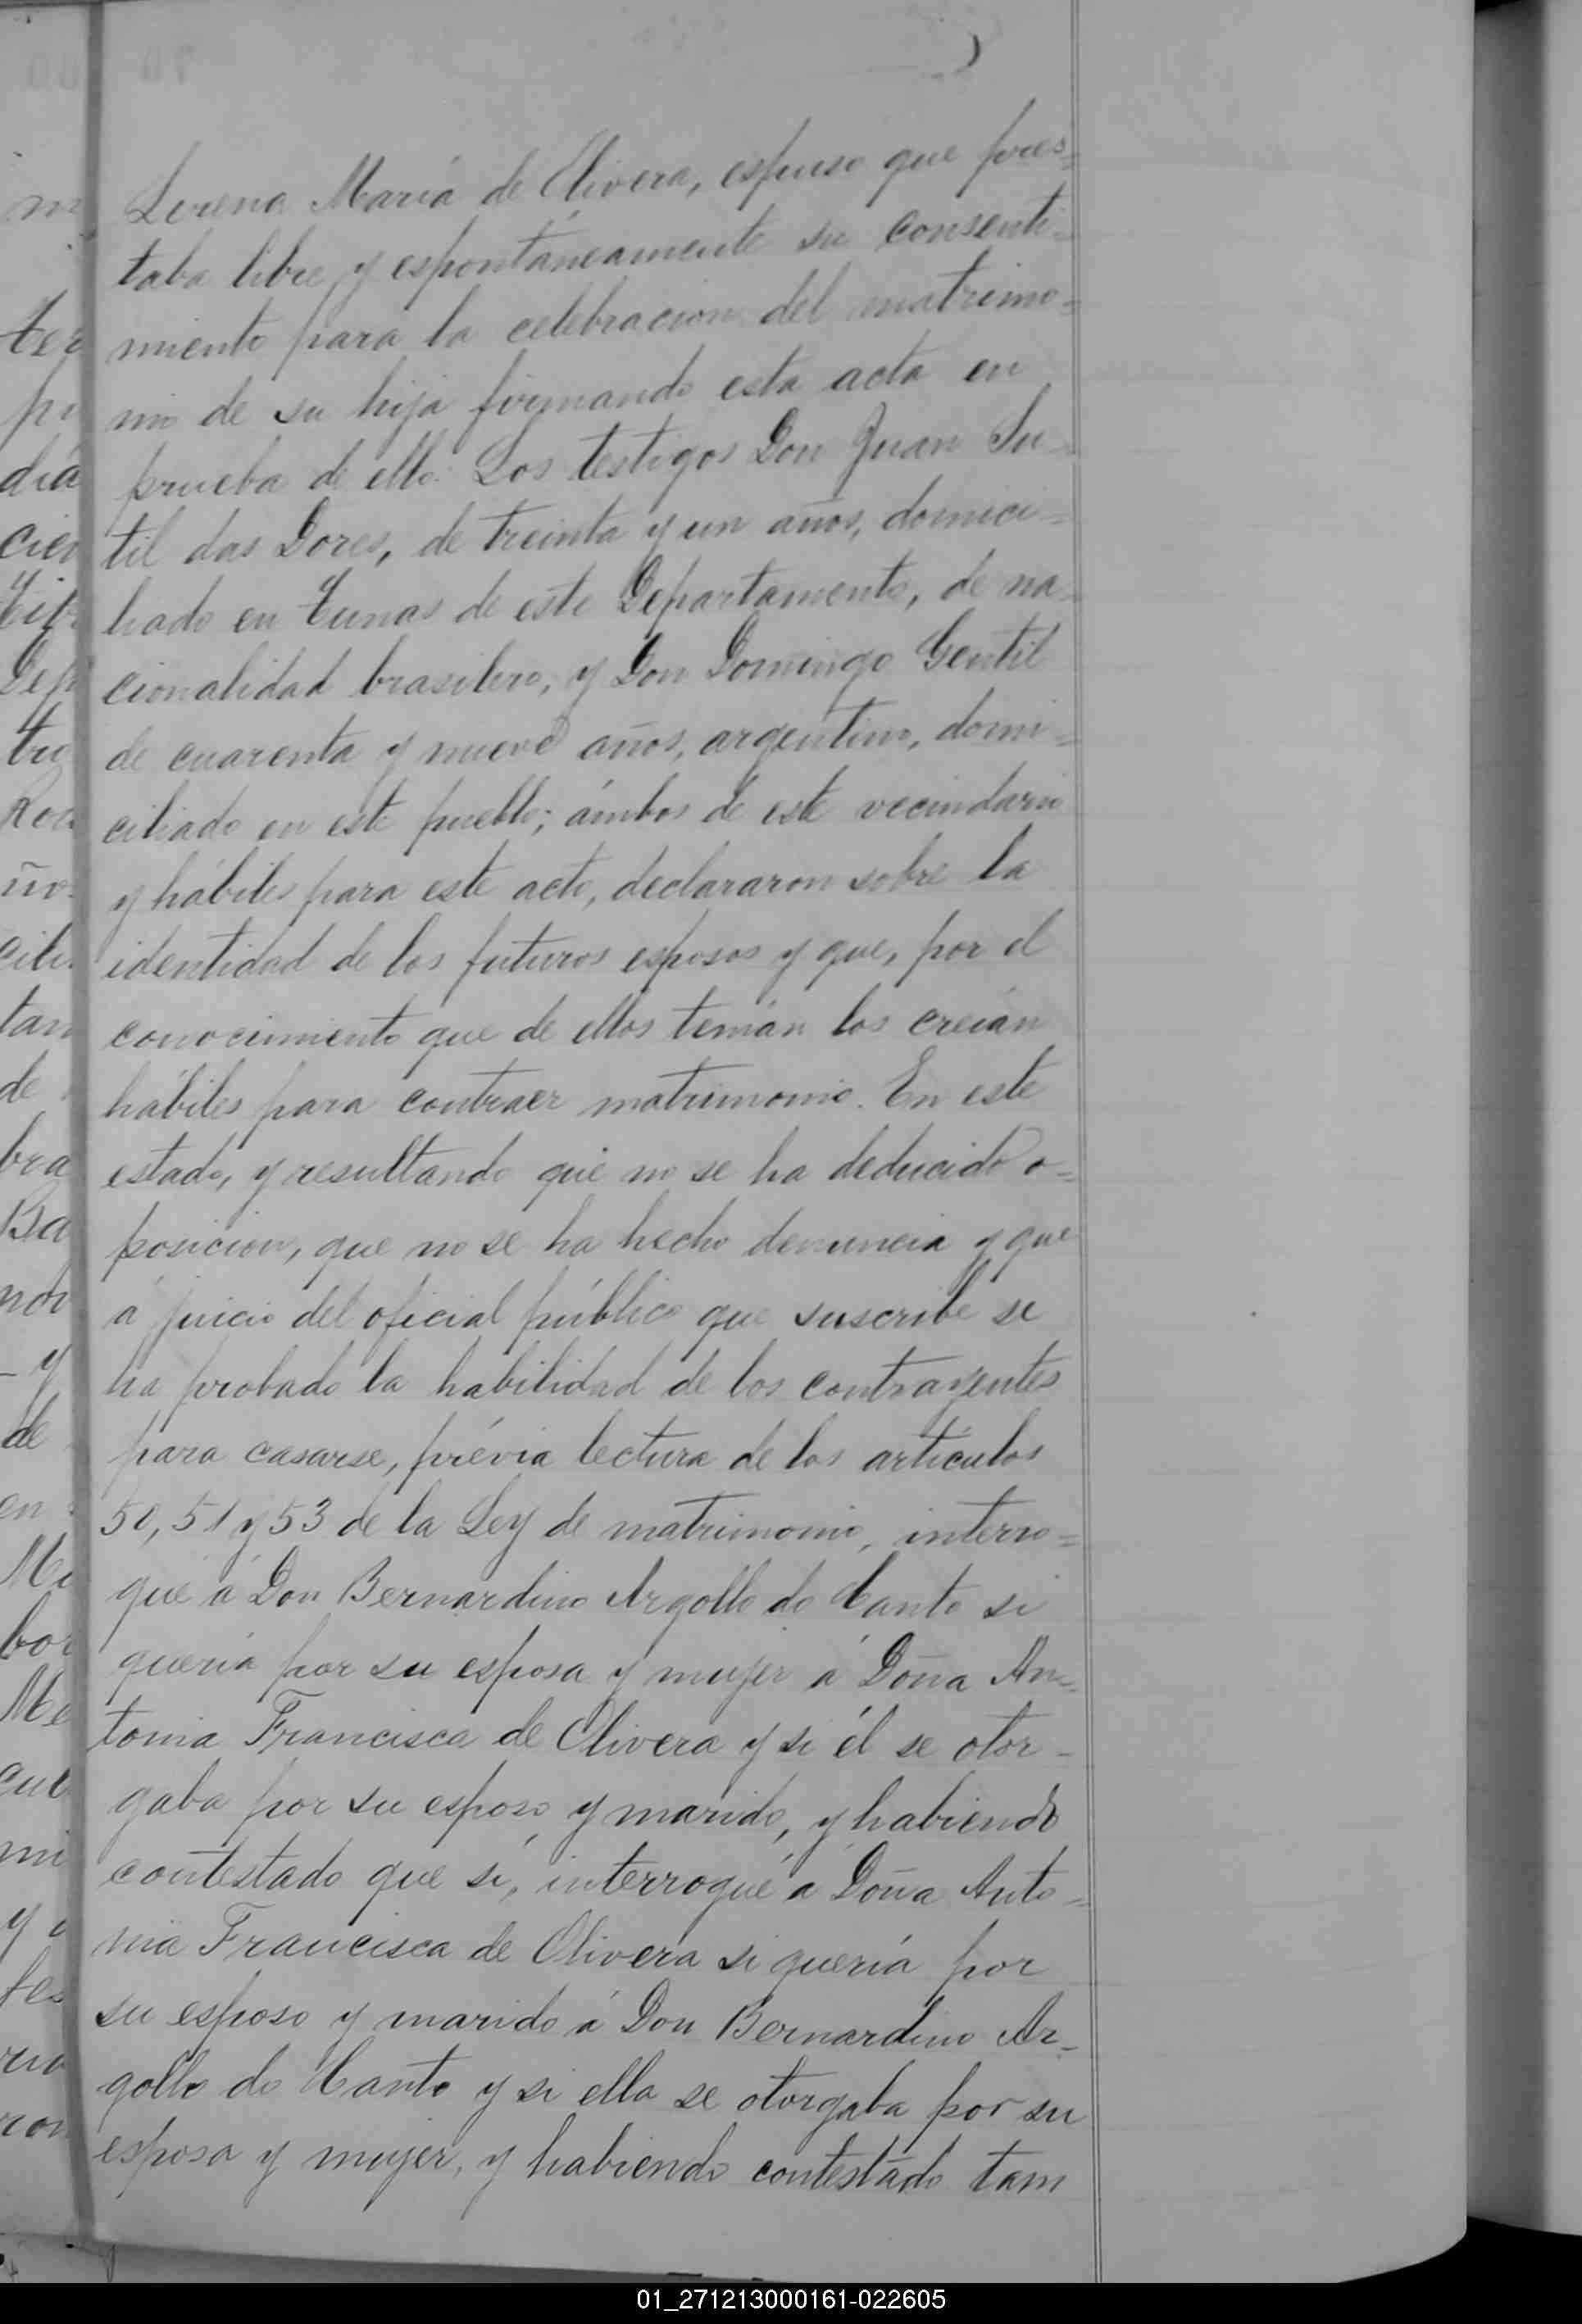 Lorena María de Olivera, espuso que pres=
taba libre y espontáneamente su consenti=
miento para la celebracion del matrimo=
nio de su hija firmando esta acta en
prueba de ello. Los testigos Don Juan Su-
til das Dores, de treinta y un años, domici=
liado en Tunas de este Departamento, de na-
cionalidad brasilero, y Don Domingo Gentil
de cuarenta y nueve años, argentino, domi=
ciliado en este pueblo; ámbos de este vecindario
y hábiles para este acto, declararon sobre la
identidad de los futuros esposos y que, por el
conocimiento que de ellos tenían los creían
hábiles para contraer matrimonio. En este
estado, y resultando que no se ha deducido o=
posicion, que no se ha hecho denuncia y que
á juicio del oficial público que suscribe se
ha probado la habilidad de los contrayentes
para casarse, prévia lectura de los artículos
50, 51 y 53 de la Ley de matrimonio, interro=
gué á Don Bernardino Argollo do Canto si
quería por su esposa y mujer á Doña An=
tonia Francisca de Olivera y si él se otor-
gaba por su esposo y marido, y habiendo
contestado que sí, interrogué á Doña Anto-
nia Francisca de Olivera si quería por
su esposo y marido á Don Bernardino Ar-
gollo do Canto y si ella se otorgaba por su
esposa y mujer, y habiendo contestado tam
01_271213000161-022605